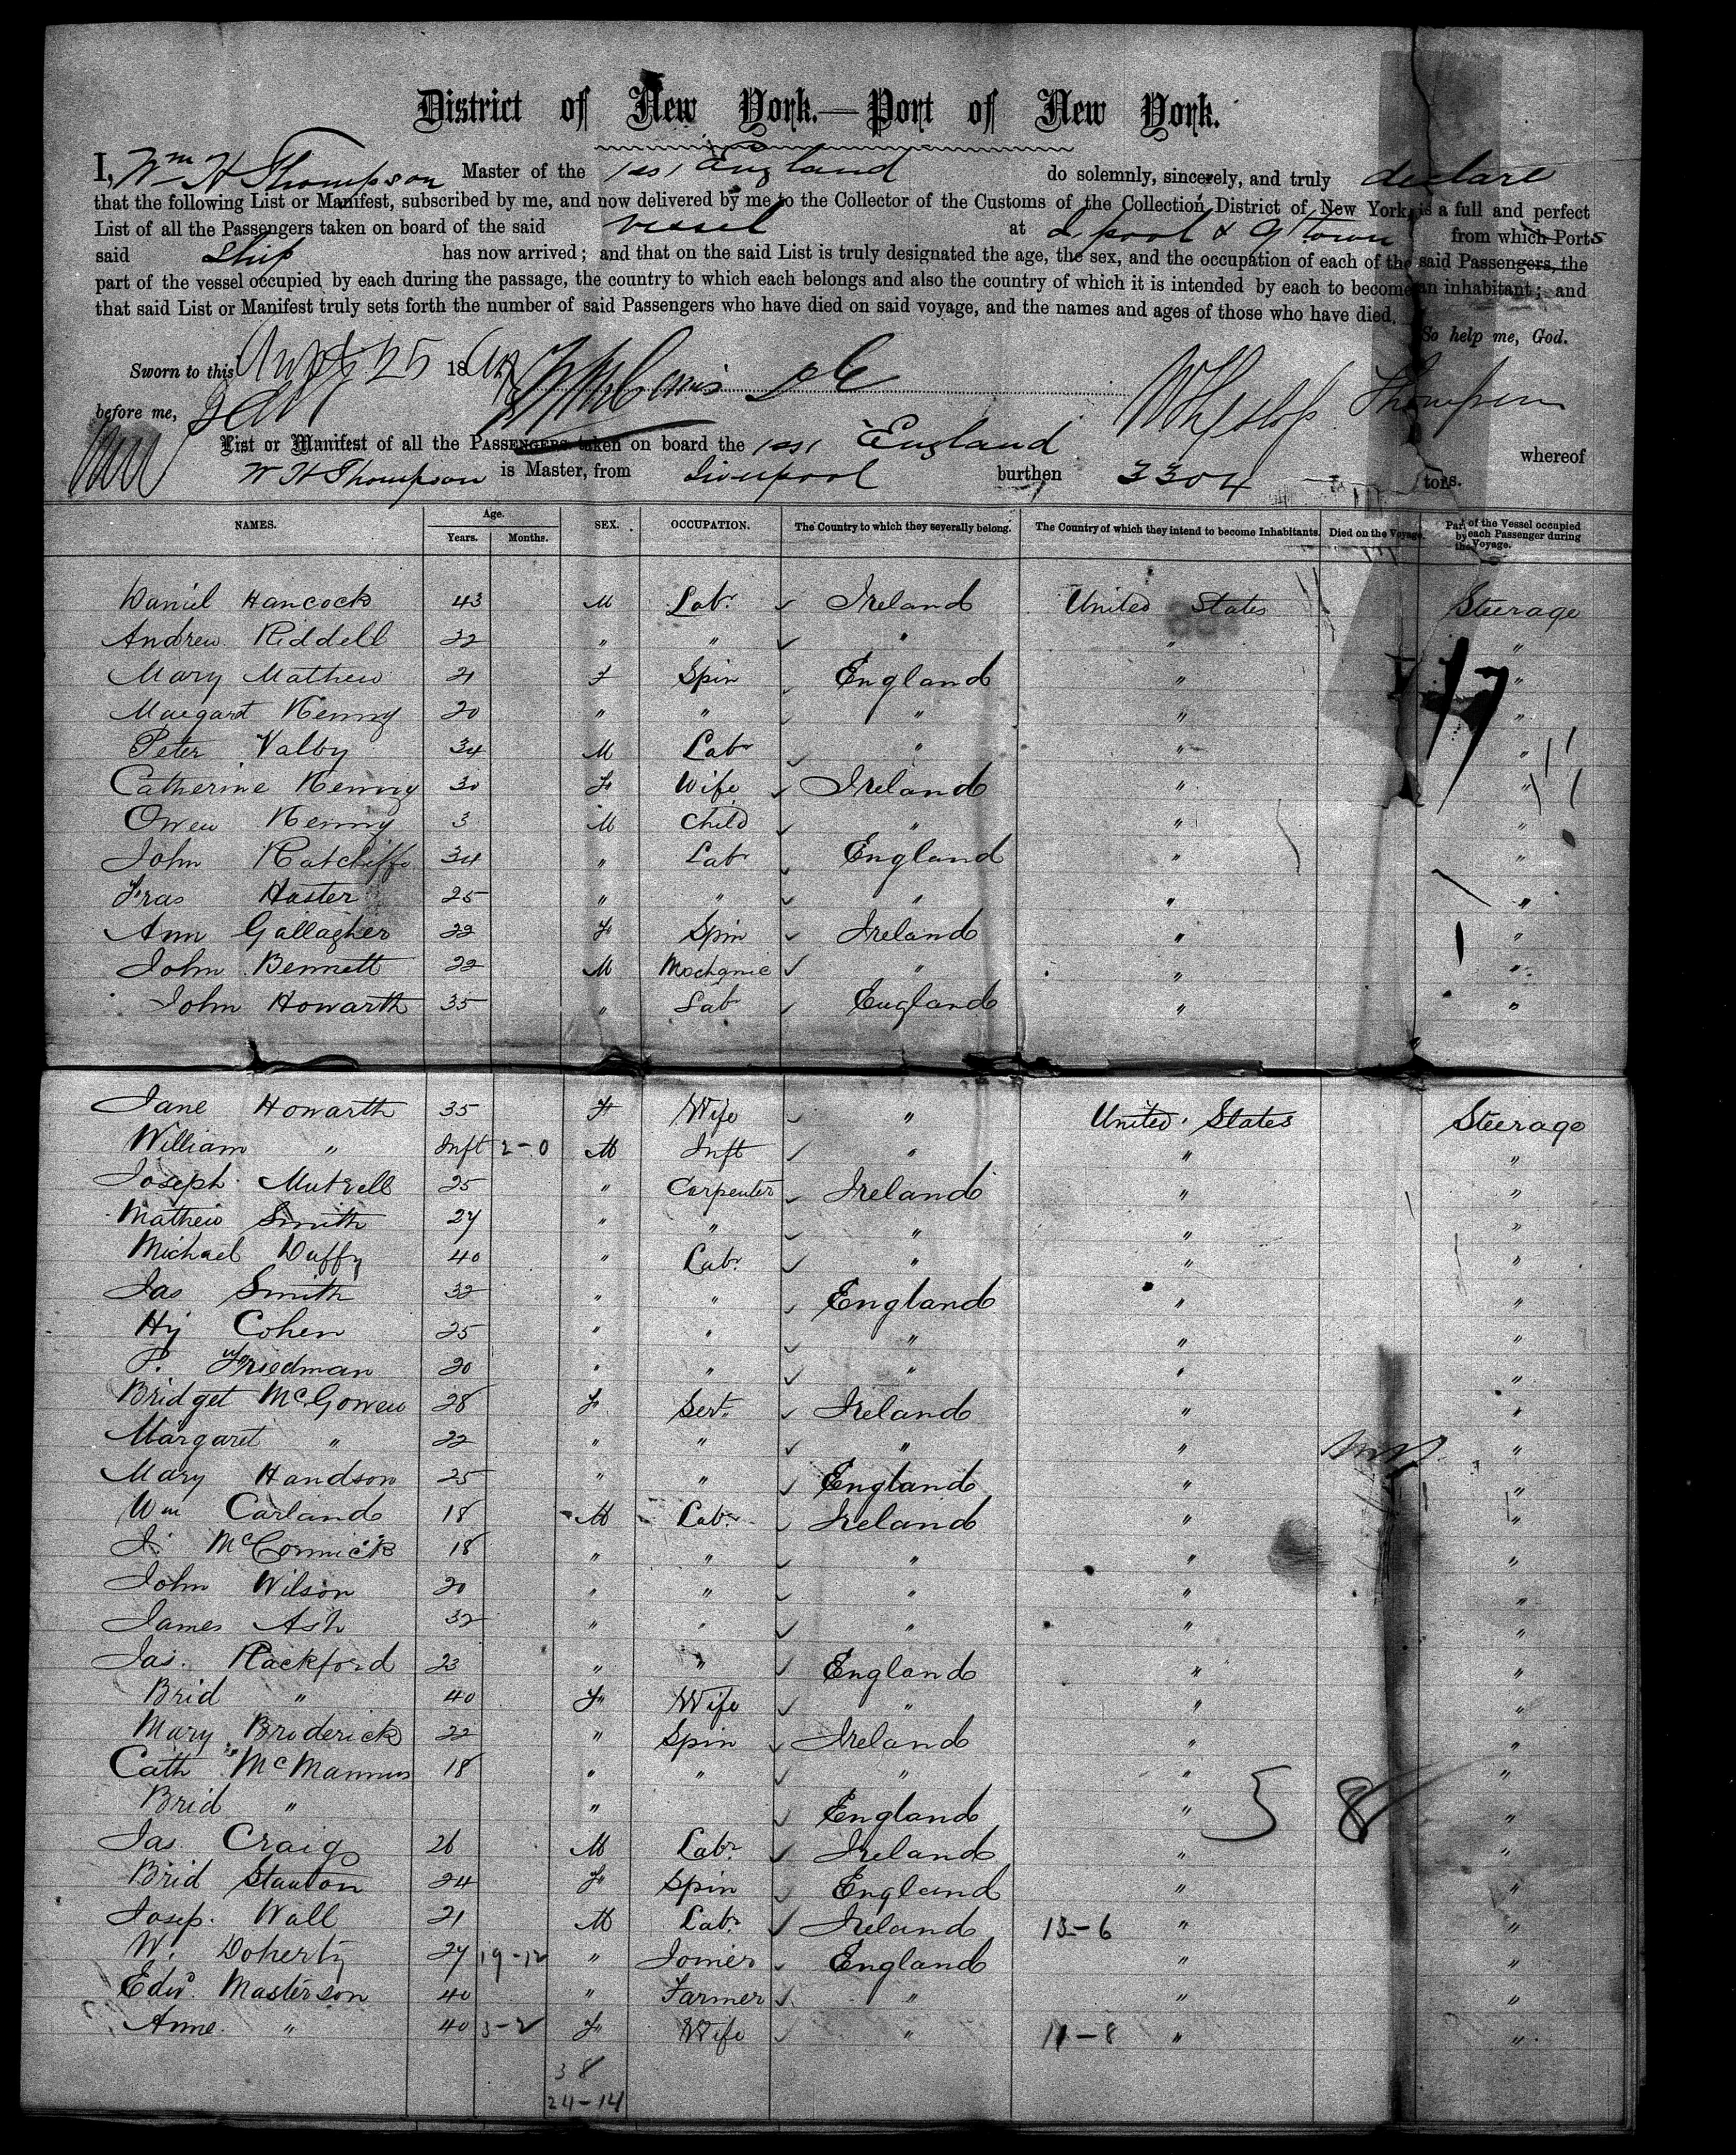 District of New York.—Port of New York.
I, Wm H Thompson Master of the "ss" England do solemnly, sincerely, and truly declare
that the following List or Manifest, subscribed by me, and now delivered by me to the Collector of the Customs of the Collection District of New York, is a full and perfect
List of all the Passengers taken on board of the said vessel at L'pool & Q'town from which Ports
said Ship has now arrived; and that on the said List is truly designated the age, the sex, and the occupation of each of the said Passengers, the
part of the vessel occupied by each during the passage, the country to which each belongs and also the country of which it is intended by each to become an inhabitant; and
that said List or Manifest truly sets forth the number of said Passengers who have died on said voyage, and the names and ages of those who have died.
So help me, God.
Sworn to this 25 18
before me, Thompson
List or Manifest of all the Passengers taken on board the "ss" England whereof
W H Thompson is Master, from Liverpool burthen 3304 tons.
NAMES. Age. Years. Months. SEX. OCCUPATION. The Country to which they severally belong. The Country of which they intend to become Inhabitants. Died on the Voyage. Part of the Vessel occupied by each Passenger during the Voyage.
Daniel Hancock 43 M Labr Ireland United States Steerage
Andrew Riddell 22 " " " " "
Mary Mathew 21 F Spin England " "
Maegart Kenny 20 " " " " "
17
Peter Valby 34 M Labr " " "
Catherine Kenny 30 F Wife Ireland " "
Owen Kenny 3 M Child " " "
John Ratcliffe 34 " Labr England " "
Fras Haster 25 " " " " "
Ann Gallagher 22 F Spin Ireland " "
John Bennett 22 M Mechanic " " "
John Howarth 35 " Lab England " "
Jane Howarth 35 F Wife " United States Steerage
William " Inft 2-0 M Inft " " "
Joseph Mutrell 25 " Carpenter Ireland " "
Mathew Smith 27 " " " " "
Michael Duffy 40 " Labr " " "
Jas Smith 32 " " England " "
Hy Cohen 25 " " " " "
P. Friedman 20 " " " " "
Bridget McGowen 28 F Servt Ireland " "
Margaret " 22 " " " " "
Mary Handson 25 " " England " "
Wm Carland 18 M Labr Ireland " "
J. McCormick 18 " " " " "
John Wilson 20 " " " " "
James Ash 32 " " " " "
Jas. Rackford 23 " " England " "
Brid " 40 F Wife " " "
Mary Broderick 22 " Spin Ireland " "
Cath McMannus 18 " " " " "
Brid " " England " 5 8 "
Jas. Craig 26 M Labr Ireland " "
Brid Stanton 24 F Spin England " "
Josep. Wall 21 M Labr Ireland 13-6 " "
W. Doherty 27 19-12 " Joiner England " "
Edwd. Masterson 40 " Farmer " " "
Anne " 40 3-2 F Wife " 11-8 " "
38
24-14